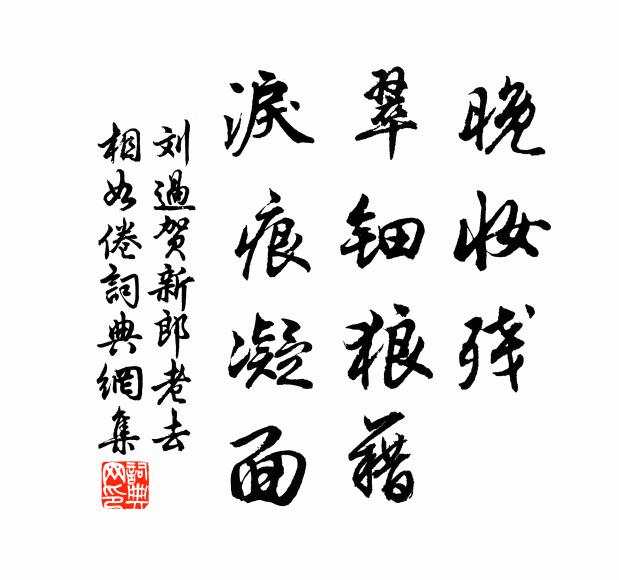 晚妆残
翠钿狼藉
淚痕凝面
刘過贺新郎老去
相如倦詞典網集
詞典网印